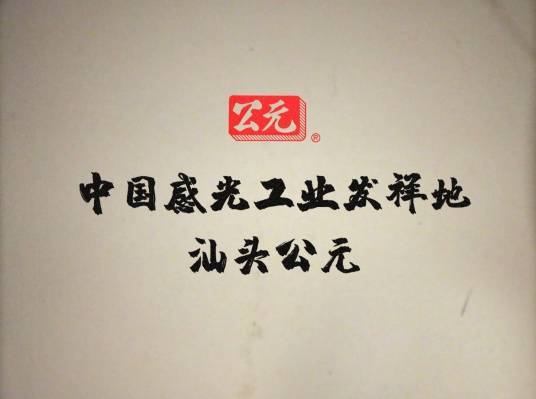 公元
®
中国感光工业发祥地
汕头公元